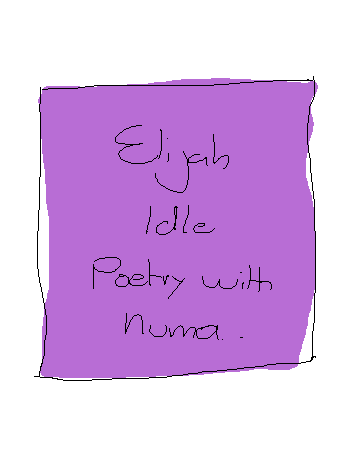 Elijah
Idle
Poetry with
Numa.